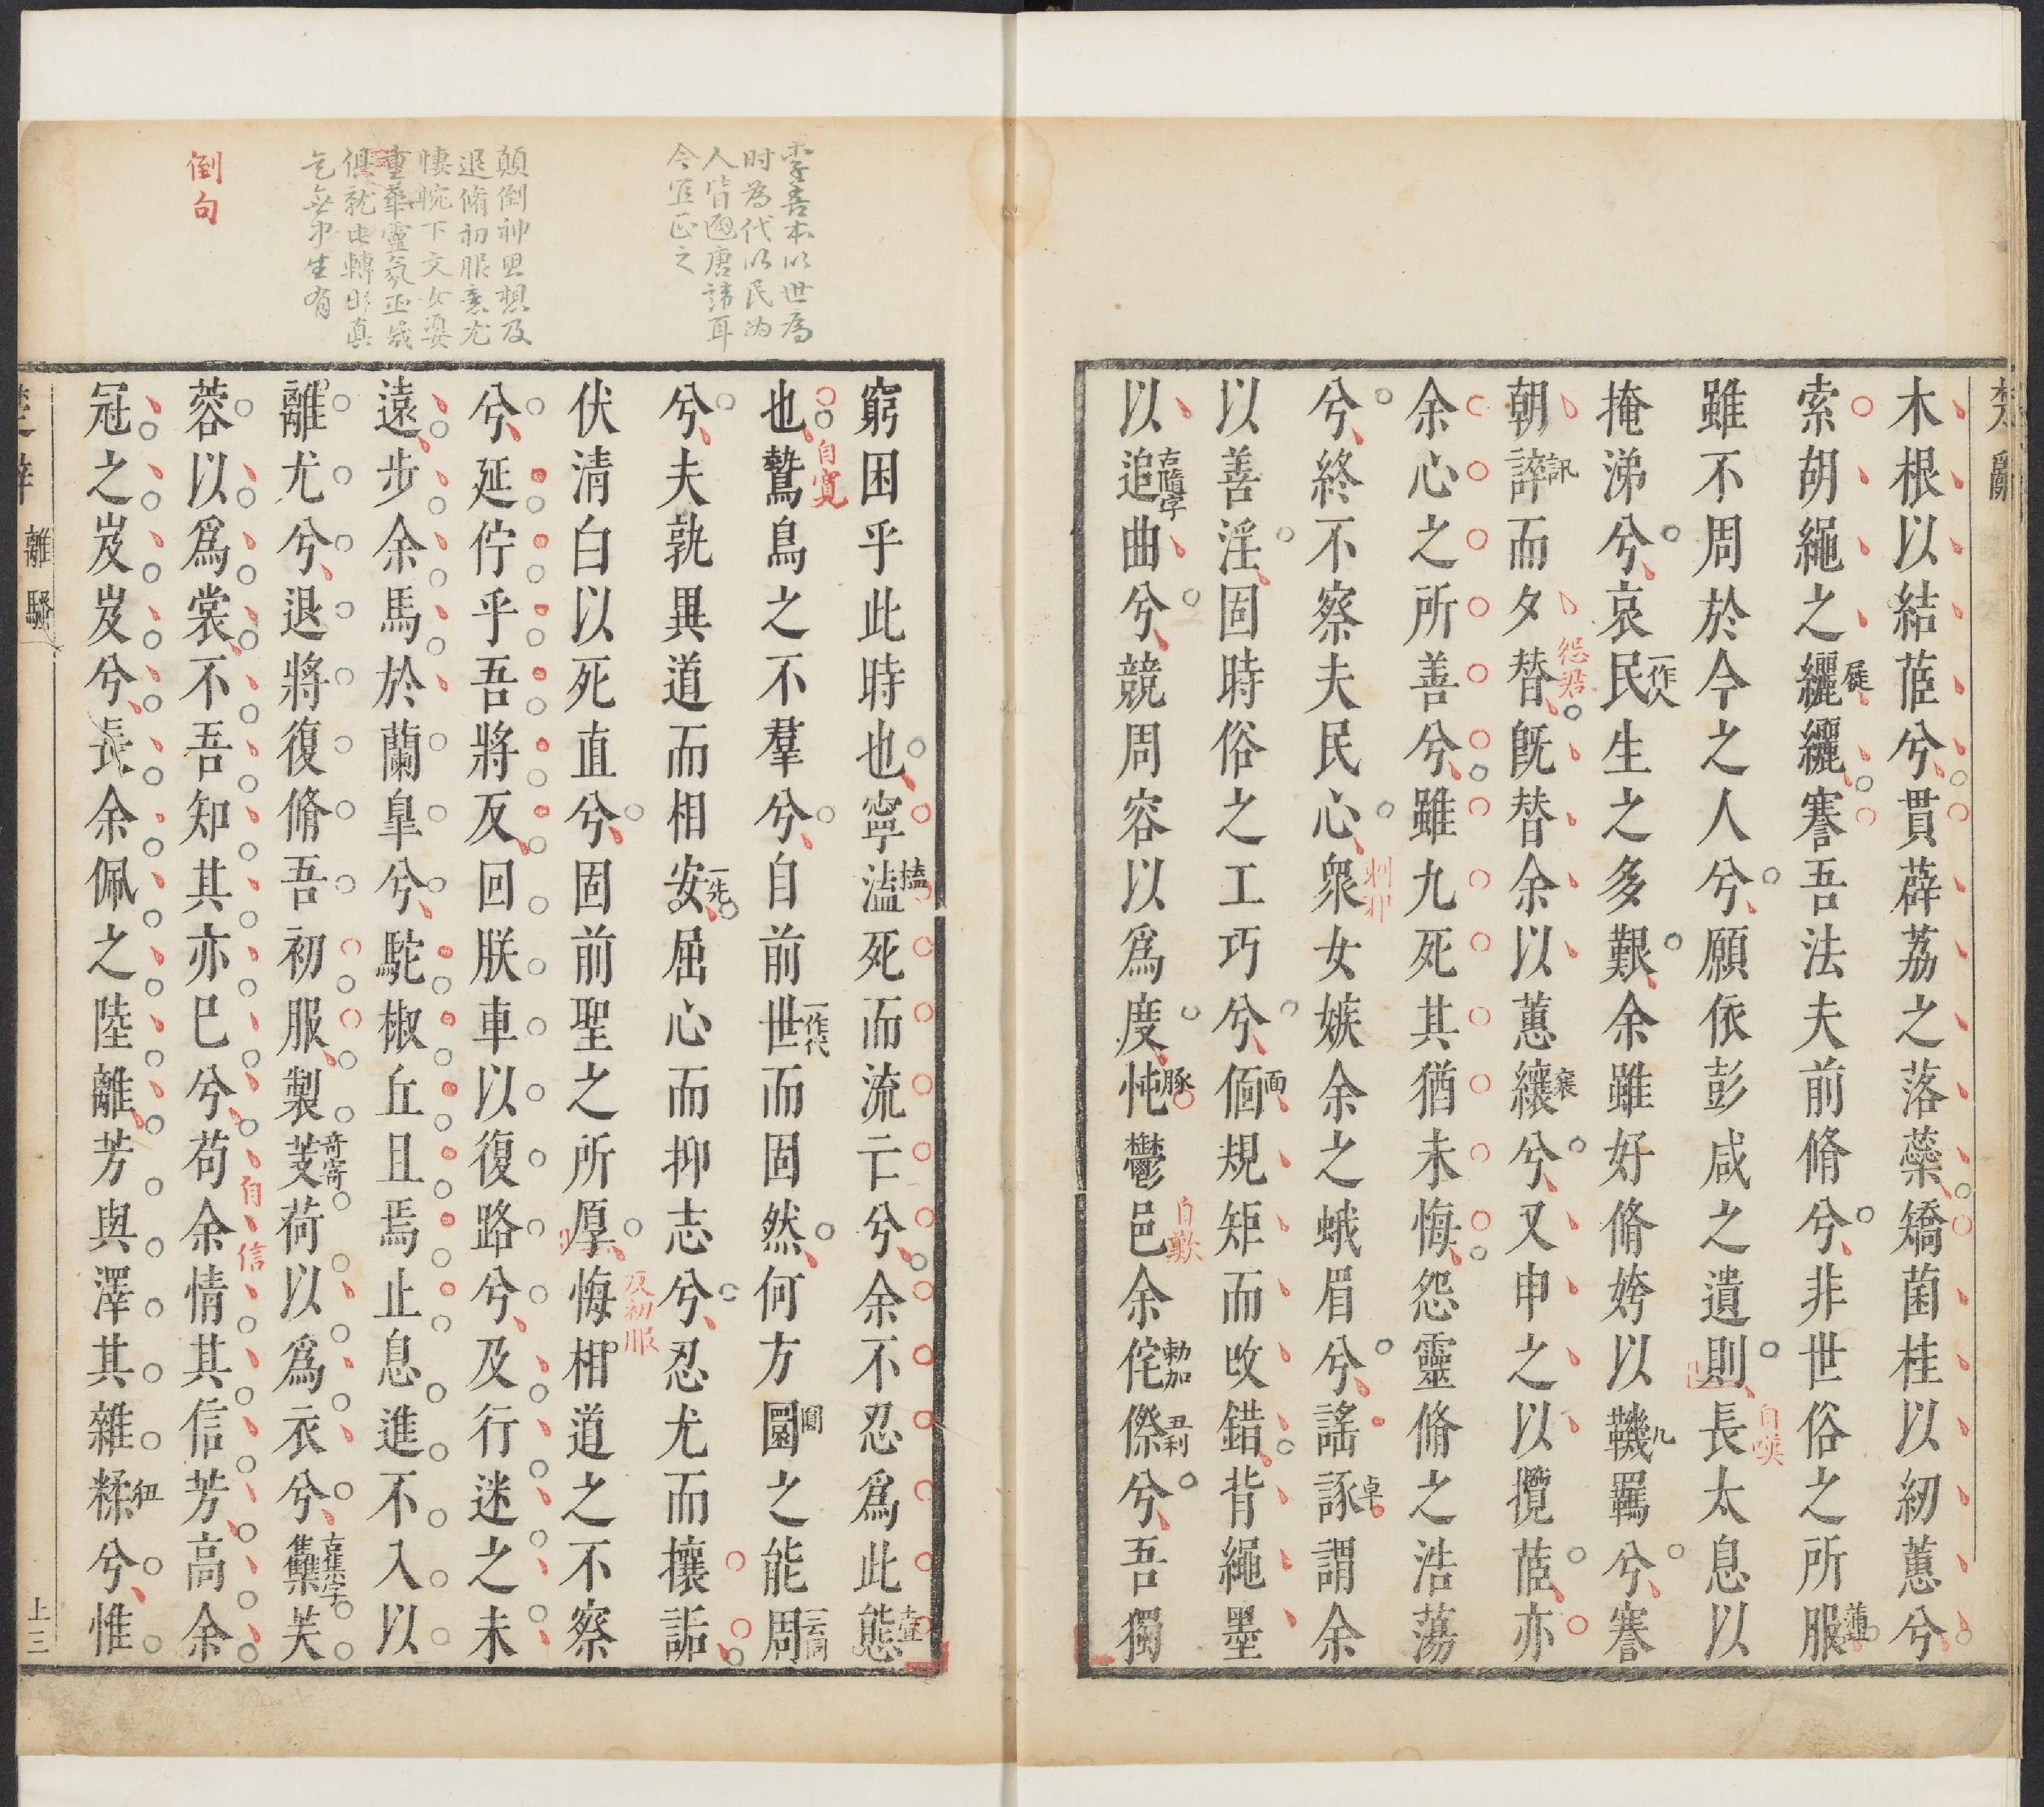 木根以結茝兮貫薜荔之落蘂矯菌桂以紉蕙兮
索胡繩之纚纚謇吾法夫前脩兮非世俗之所服
雖不周於今之人兮願依彭咸之遺則長太息以
掩涕兮哀民生之多艱余雖好脩姱以鞿羈兮謇
朝誶而夕替既替余以蕙纕兮又申之以攬茝亦
余心之所善兮雖九死其猶未悔怨靈脩之浩蕩
兮終不察夫民心衆女嫉余之蛾眉兮謠諑謂余
以善淫固時俗之工巧兮偭規矩而改錯背繩墨
以追曲兮競周容以爲度忳鬱邑余侘傺兮吾獨
屣
一作人
訊
怨君
纕
自嘆
九
卓
面
古隨字
豚
自歎
勅加
丑利
李善本以世爲
时为代以民为
人皆避唐諱耳
今宜正之
窮困乎此時也寧溘死而流亡兮余不忍爲此態
也鷙鳥之不羣兮自前世而固然何方圜之能周
兮夫孰異道而相安屈心而抑志兮忍尤而攘詬
伏清白以死直兮固前聖之所厚悔相道之不察
兮延佇乎吾將反回朕車以復路兮及行迷之未
遠步余馬於蘭皐兮駝椒丘且焉止息進不入以
離尤兮退將復脩吾初服製芰荷以爲衣兮雧芙
蓉以爲裳不吾知其亦已兮苟余情其信芳高余
冠之岌岌兮長余佩之陸離芳與澤其雜糅兮惟
榼
自寬
一作代
圓
一云同
一先
反初服
奇寄
古集字
自信
紐
顛倒神思想及
退脩初服意尤
悽惋下文女嬃
重華靈氛巫咸
俱就此轉出真
乞無中生有
倒句
離騷
上三